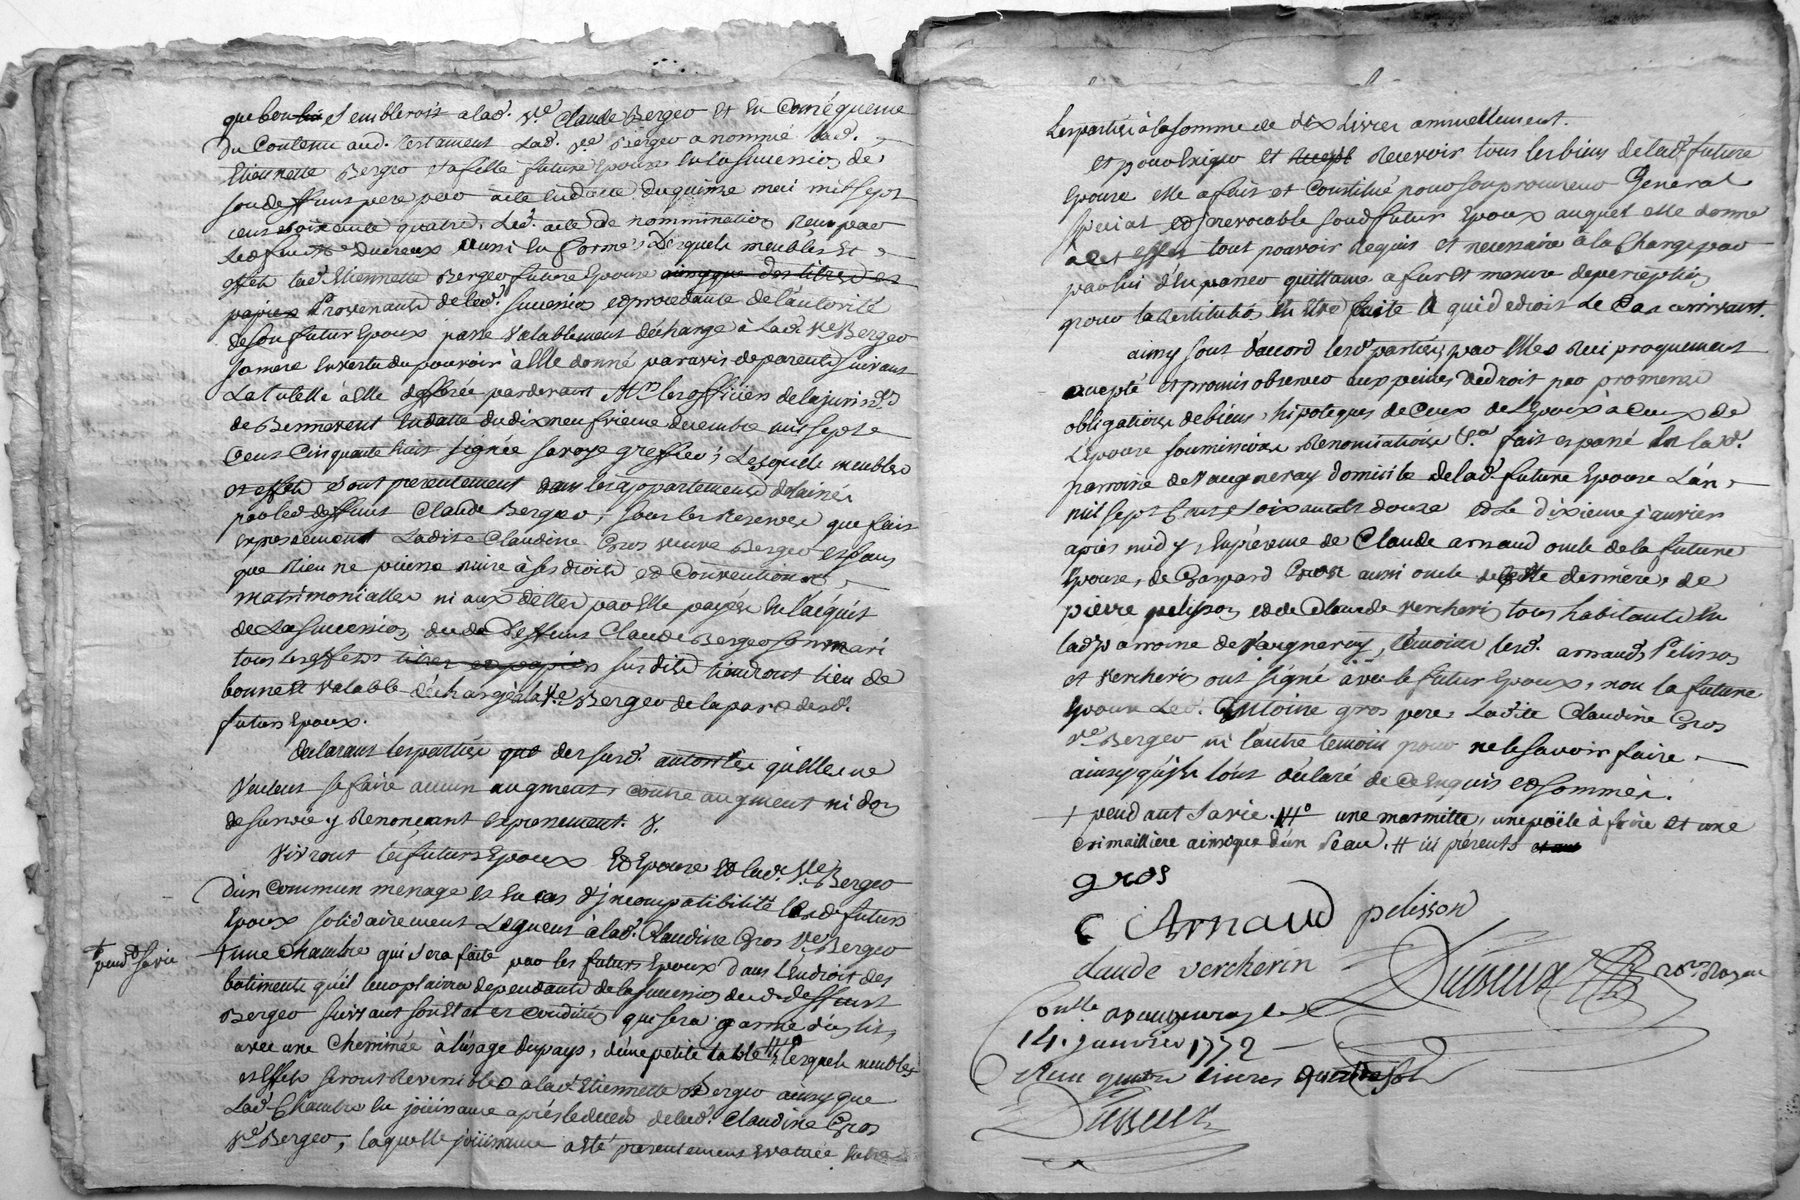 que bon lui sembleroit a lad. ve. Claude Bergeo et en Conséquence
Du Contenu aud. testament Lad. ve Bergeo a nommé lad.
Etiennette Bergeo sa fille future Epouse en la succession de
son deffunt pere par acte en datte du quinze mai mil sept
cent soixante quatre, Led. acte de nommination reçu par
Led. Me Ducreux aussi en forme, Desquels meubles et
effets lad. Etiennette Bergeo future Epouse ainsy que des titres et
papiers Provenants de lad. succession et procedante de l'autorité
de son futur Epoux passe valablement décharge à Lad. ve Bergeo
sa mere en vertu du pouvoir à elle donné par avis de parents suivant
La tutelle à elle defferée pardevant Mrs les officiers de la jurisdon
de Bennevent en datte du dix neufvieme decembre mil sept
Cent Cinquante huit signée savoye greffier; Lesquels meubles
et effets sont presentement dans les appartements delaissés
par led. deffunt Claude Bergeo, sous les reserves que fait
expressement Ladite Claudine Gros veuve Bergeo et sans
que rien ne puisse nuire à ses droits et Conventions
matrimonialles ni aux dettes par elle payées en l'acquit
de La succession dud. deffunt Claude Bergeo son mari
tous les effets titres et papiers susdits tiendront lieu de
bonne et valable décharge à la ve Bergeo de la part desd.
futurs Epoux.
declarant les parties que des susd. autorités qu'elles ne
veulent se faire aucun augment, contre augment ni don
de survie y renonçant expressement.
Vivront les futurs Epoux et Epouse et lad. ve Bergeo
d'un commun menage et en cas d'incompatibilité lesd. futurs
Epoux solidairement Leguent à lad. Claudine Gros ve Bergeo
+ pend.t sa vie
+ une chambre qui sera faite par les futurs Epoux dans l'endroit des
batiments qu'il leur plaira dependants de la succession dud. deffunt
Bergeo suivant son Etat et condition qui sera garnie d'un lit,
avec une cheminée à l'usage du pays, d'une petite table # Lesquels meubles
et Effets seront reversibles a lad. Etiennette Bergeo ainsy que
Lad. Chambre en jouissance après le deces de lad. Claudine Gros
ve Bergeo, laquelle jouissance a été presentement evaluée entre
Les parties à la somme de dix Livres annuellement.
et pour Exiger et recevoir tous les biens de lad. future
Epouse elle a fait et Constitué pour son procureur General
special et irrevocable sond. futur Epoux auquel elle donne
à cet effet tout pouvoir requis et necessaire à la Charge par
par lui d'en passer quittance a fur et mesure de perception
pour la restitution en etre faite à qui de droit Le Cas arrivant.
ainsy sont d'accord lesd. parties par Elles reciproquement
accepté et promis observer aux peines de droit par promesses
obligations de biens, hipoteques de Ceux de l'Epoux à Ceux de
L'Epouse soumissions renonciations &a. fait et passé en la d.
parroisse de Vaugneray domicile de lad. future Epouse L'an
mil sept Cent soixante douze et le dixieme janvier
après midy, En présence de Claude arnaud oncle de la future
Epouse, de Gaspard Gros aussi oncle de cette derniere, de
pierre pelisson et de Claude vercherin tous habitants en
lad. parroisse de Vaugneray, témoins lesd. arnaud, Pelisson
et vercherin ont signé avec le futur Epoux, non la future
Epouse Led. Antoine gros pere, Ladite Claudine Gros
ve Bergeo ni l'autre temoin pour ne le savoir faire
ainsy qu'ils l'ont déclaré de ce enquis et sommés.
+ pendant sa vie. # une marmitte, une poële à frire et une
crimaillière ainsy que d'un seau. # ici présents
gros
C Arnaud pelisson
claude vercherin Ducreux nore Royal
Con.lle a vaugneray le
14. janvier 1772
Reçu quatre livres
Ducreux